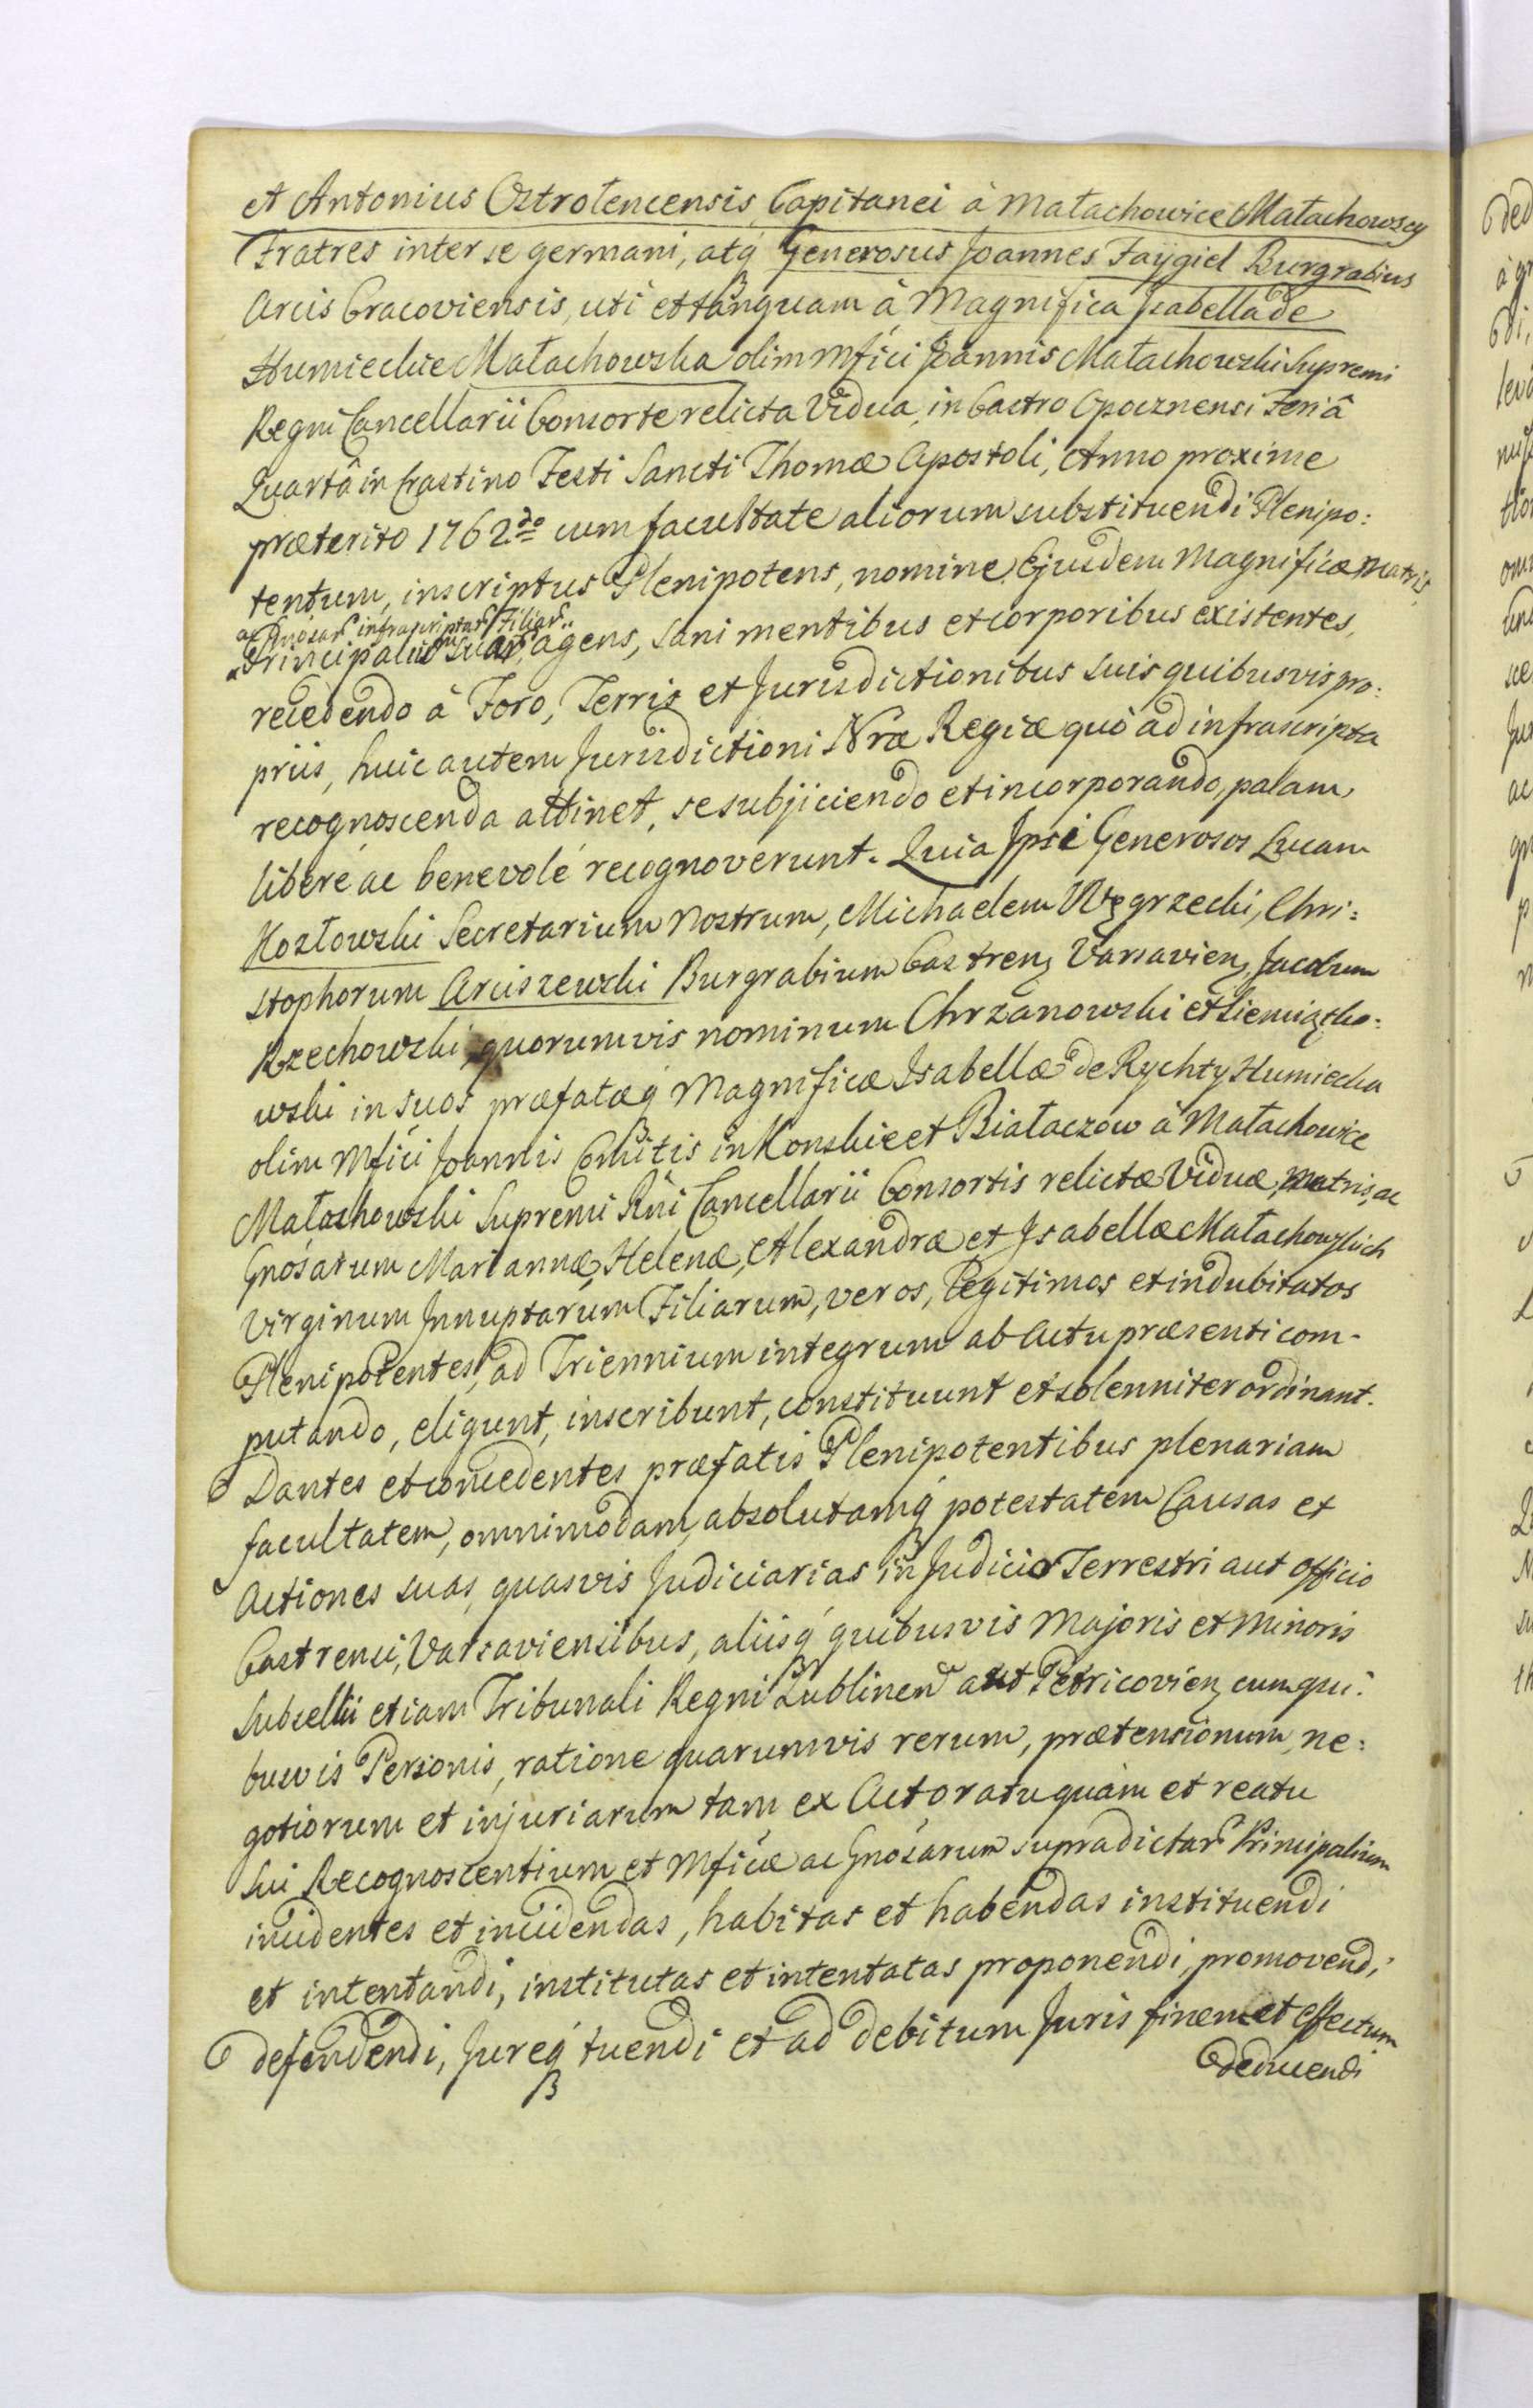 et Antonius Ostrołencensis, Capitanei à Małachowice Małachowscy
Fratres inter se germani, atq́ Generosus Joannes Faÿgiel Burgrabius
Arcis Cracoviensis, uti et tanquam à Magnifica Isabella de
Humieckie Małachowska olim Mfici Joannis Małachowski Supremi
Regni Cancellarii Consorte relicta Vidua, in Castro Opocznensi Feriâ
Quartâ in Crastino Festi Sancti Thomæ Apostoli, Anno proxime
præterito 1762do cum facultate aliorum substituendi Plenipo:
tentum, inscriptus Plenipotens, nomine Ejusdem Magnificæ Matris,
ac Gnósar infrascriptar Filiar
Principalium suar, agens, sani mentibus et corporibus existentes,
recedendo à Foro, Terris et Jurisdictionibus suis quibusvis pro:
priis, huic autem Jurisdictioni Nræ Regiæ quò ad infrascripta
recognoscenda attinet, se subjiciendo et incorporando, palam,
liberé ac benevolé recognoverunt. Quia Ipsi Generosos Lucam
Kozłowski Secretarium Nostrum, Michaelem Węgrzecki, Chri:
stophorum Arciszewski Burgrabium Castren, Varsavien, Jacobum
Rzechowski, quorumvis nominum Chrzanowski et Siemiątko:
wski in suos præfatæq́ Magnificæ Isabellæ de Rychty Humiecka
olim Mfici Joannis Comitis in Konskie et Białaczow à Małachowice
Małachowski Supremi Rńi Cancellarii Consortis relictæ Viduæ, Matris, ac
Gnósarum Mariannæ, Helenæ, Alexandræ et Isabellæ Małachowskich
Virginum Innuptarum Filiarum, veros, Legitimos et indubitatos
Plenipotentes, ad Triennium integrum ab Actu præsenti com-
putando, eligunt, inscribunt, constituunt et solenniter ordinant.
Dantes et concedentes præfatis Plenipotentibus plenariam
facultatem, omnimodam, absolutamq́ potestatem Causas et
Actiones suas, quasvis Judiciarias in Judicio Terrestri aut Officio
Castrensi, Varsaviensibus, aliisq́ quibusvis Majoris et Minoris
Subsellii etiam Tribunali Regni Lublinen aut Petricovien, cum qui:
busvis Personis, ratione quarumvis rerum, prætensionum, ne:
gotiorum et injuriarum tam ex Actoratu quàm et reatu
Sui Recognoscentium et Mficæ ac Gnósarum supradictar Principalium
incidentes et incidendas, habitas et habendas instituendi
et intentandi, institutas et intentatas proponendi, promovendi,
defendendi, Jureq́ tuendi et ad debitum Juris finem et effectum
deducendi